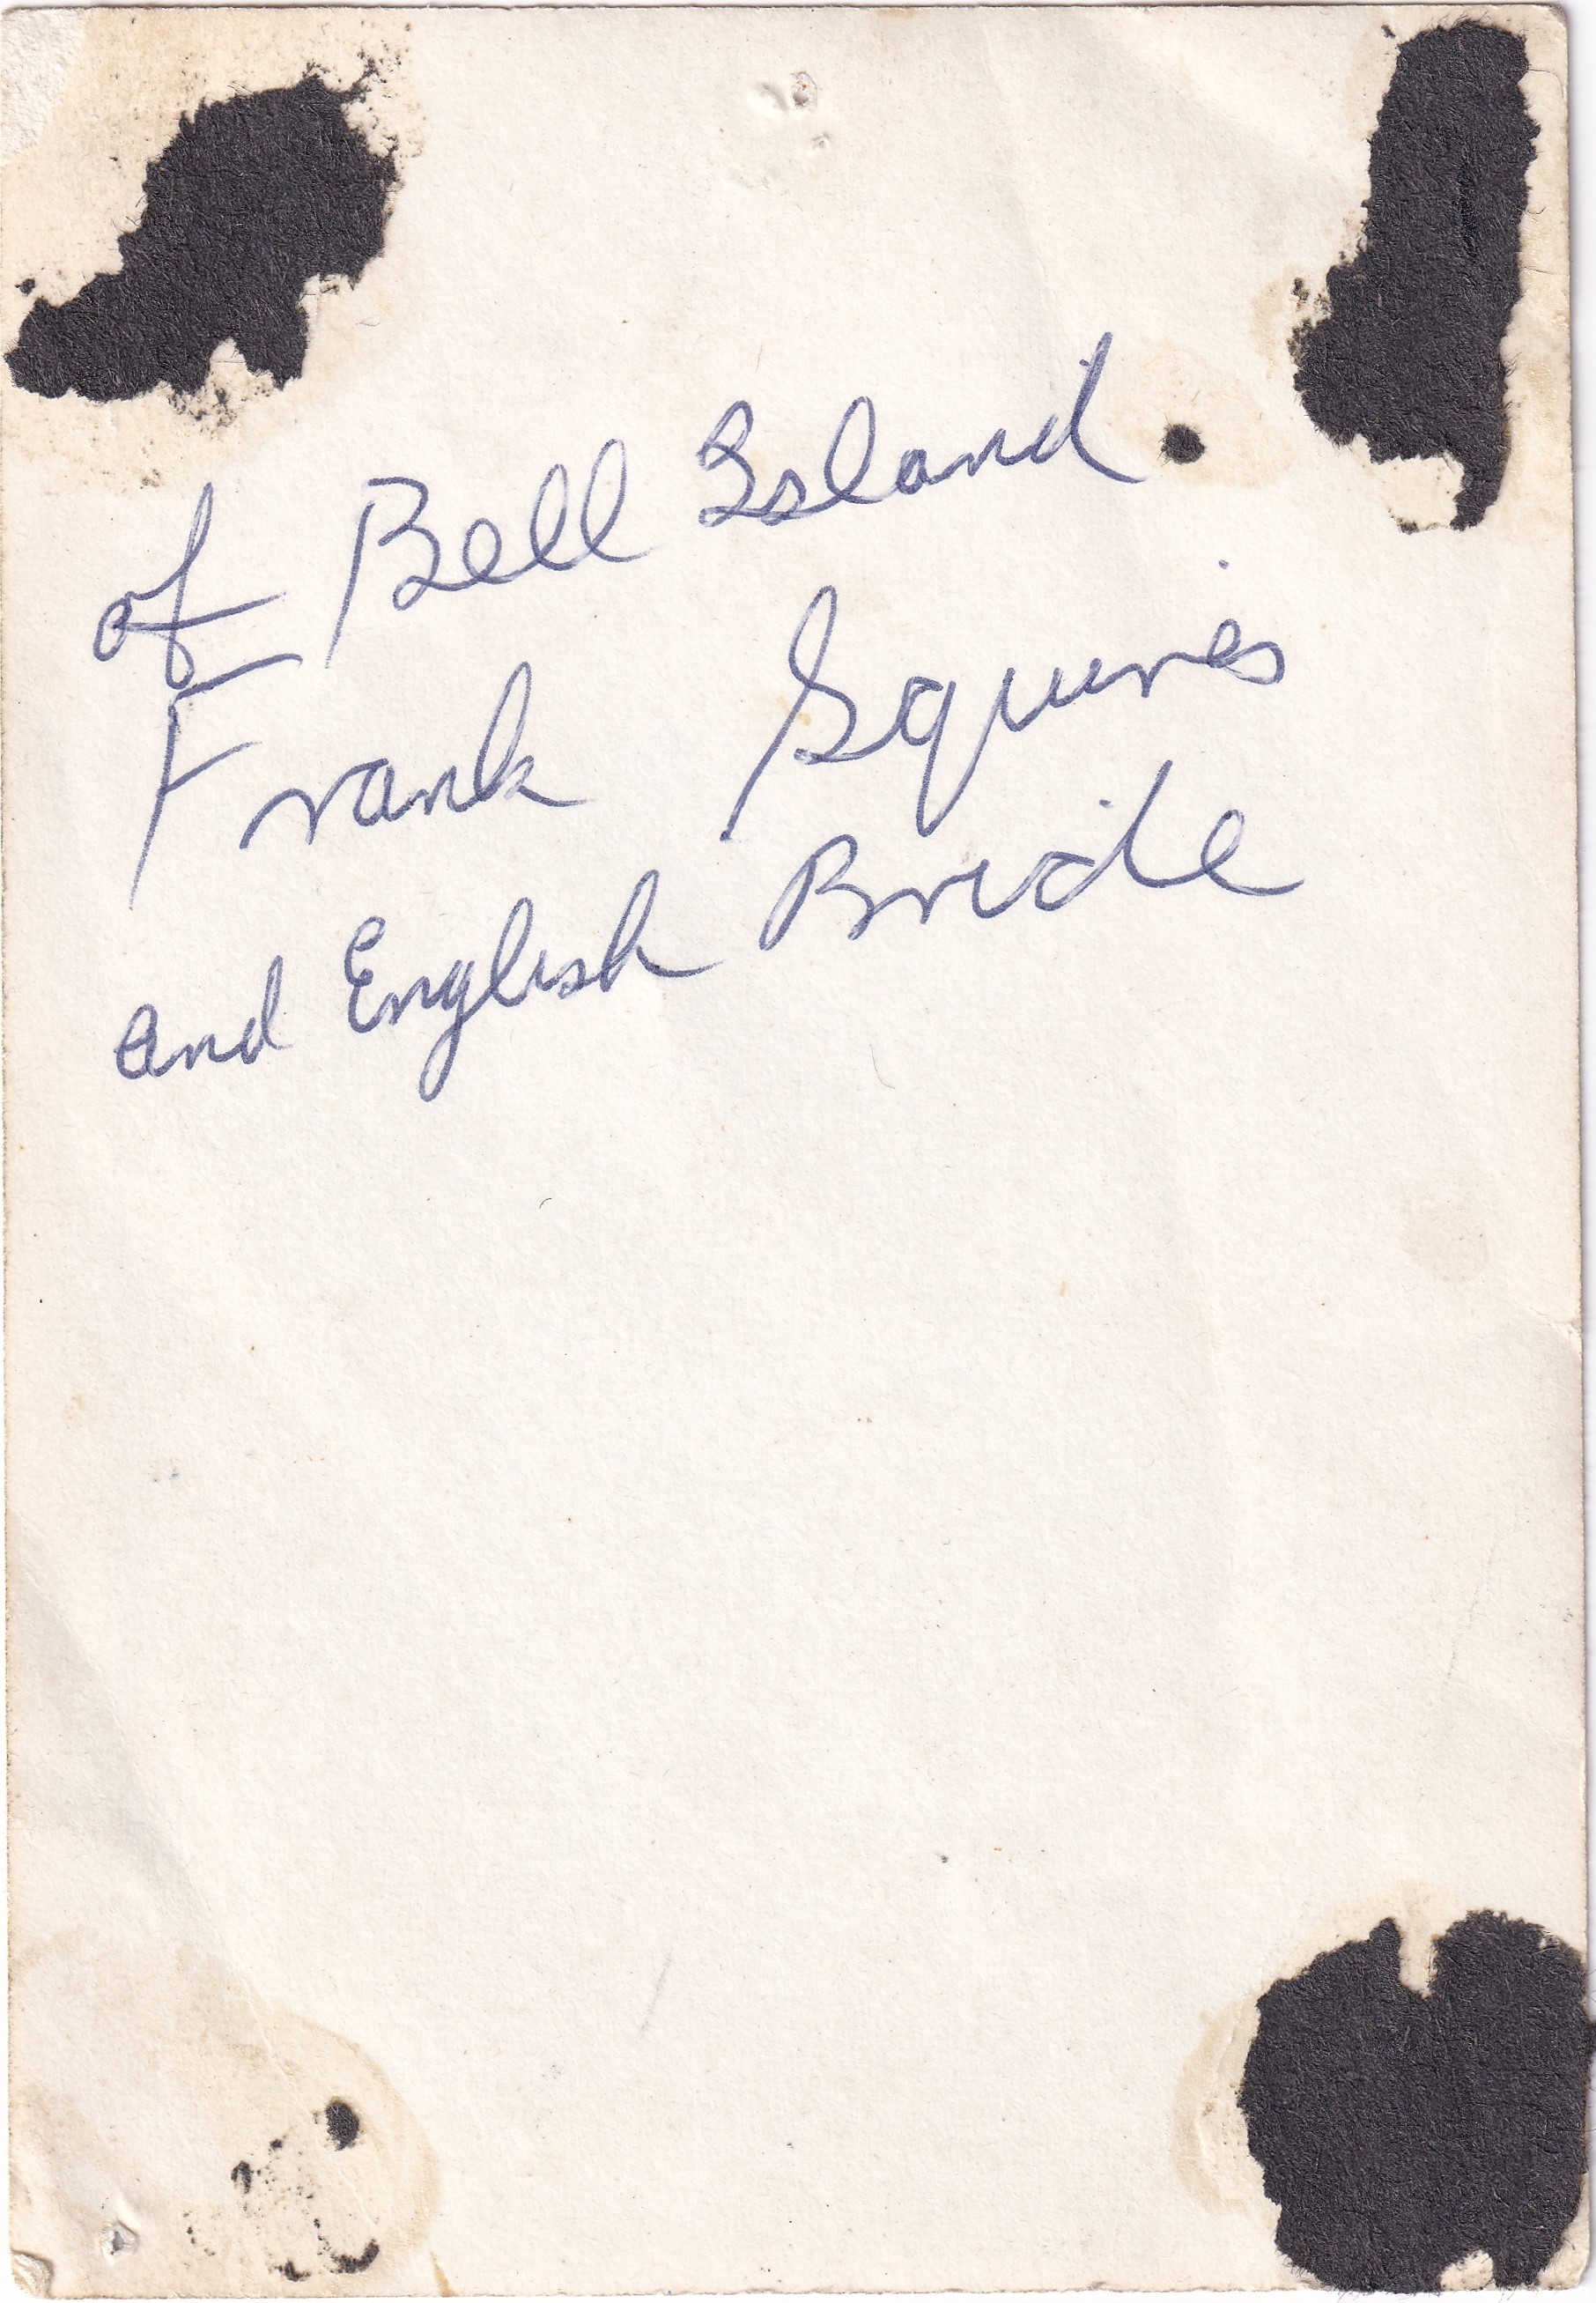 of Bell Island
Frank Squires
and English Bride